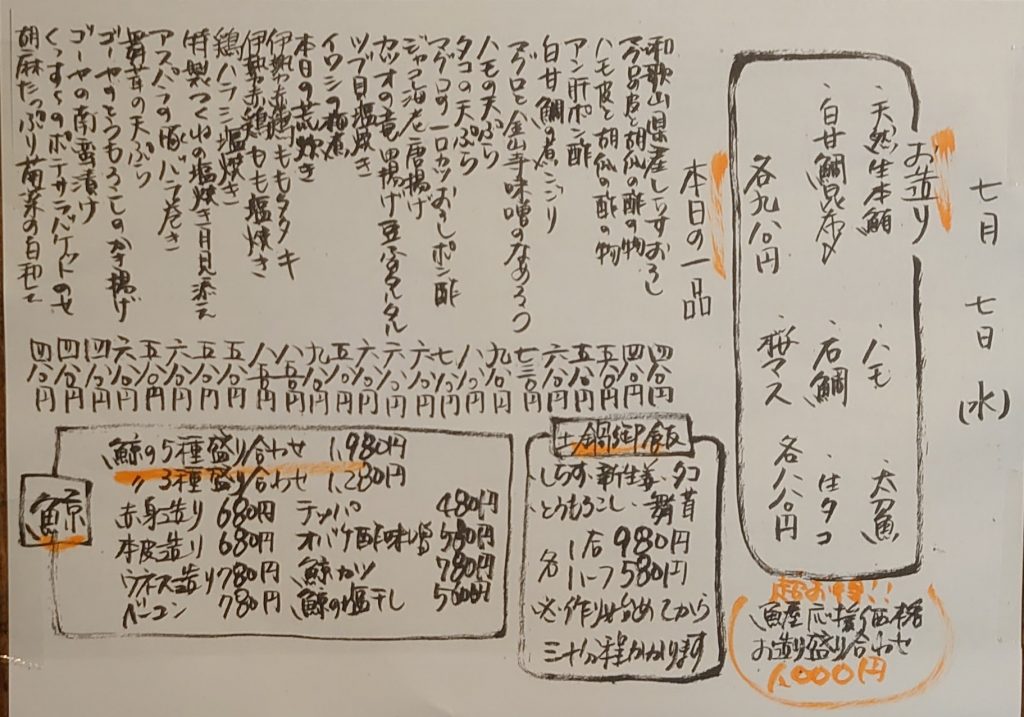 七月 七日(水)
お造り
・天然生本鮪 ・ハモ ・太刀魚
・白甘鯛昆布〆 ・石鯛 ・生タコ
各九八〇円 桜マス 各八八〇円
超お得!!
魚屋応援価格
お造り盛り合わせ
1,000円
本日の一品
和歌山県産しらすおろし 四八〇円
マグロの皮と胡瓜の酢の物 四八〇円
ハモ皮と胡瓜の酢の物
アン肝ポン酢
白甘鯛の煮こごり
マグロと金山寺味噌のなめろう
ハモの天ぷら
タコの天ぷら
マグロの一口カツおろしポン酢
ジャコ海老唐揚げ
カツオの竜田揚げ豆腐タルタル
ツブ貝塩焼き
イワシの梅煮
本日の荒炊き
伊勢赤鶏ももタタキ
伊勢赤鶏もも塩焼き
鶏ハラミ塩焼き
特製つくねの塩焼き月見添え
アスパラの豚バラ巻き
舞茸の天ぷら
ゴーヤととうもろこしのかき揚げ
ゴーヤの南蛮漬け 四八〇円
くんすもののポテサラバケットのせ 四八〇円
胡麻たっぷり菊菜の白和え 四八〇円
土鍋御飯
しらす・新生姜・タコ
とうもろこし・舞茸
各 1合 980円
ハーフ 580円
※作り始めてから
三十分程かかります
鯨
鯨の5種盛り合わせ 1,980円
〃 3種盛り合わせ 1,280円
赤身造り 680円 テッパ 480円
本皮造り 680円 オバケ酢味噌 580円
ウネス造り 780円 鯨カツ 780円
ベーコン 780円 鯨の塩干し 500円